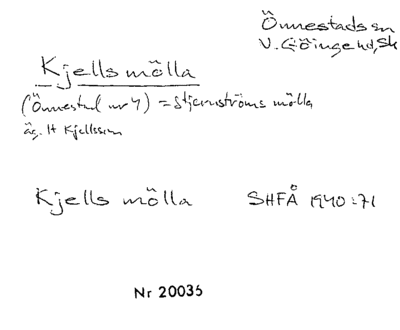 Önnestads sn
V. Göinge hd, Sk
Kjells mölla
(Önnestad nr 4) = Stjernströms mölla
äg. H Kjellsson
Kjells mölla SHFÅ 1940:71
Nr 20035